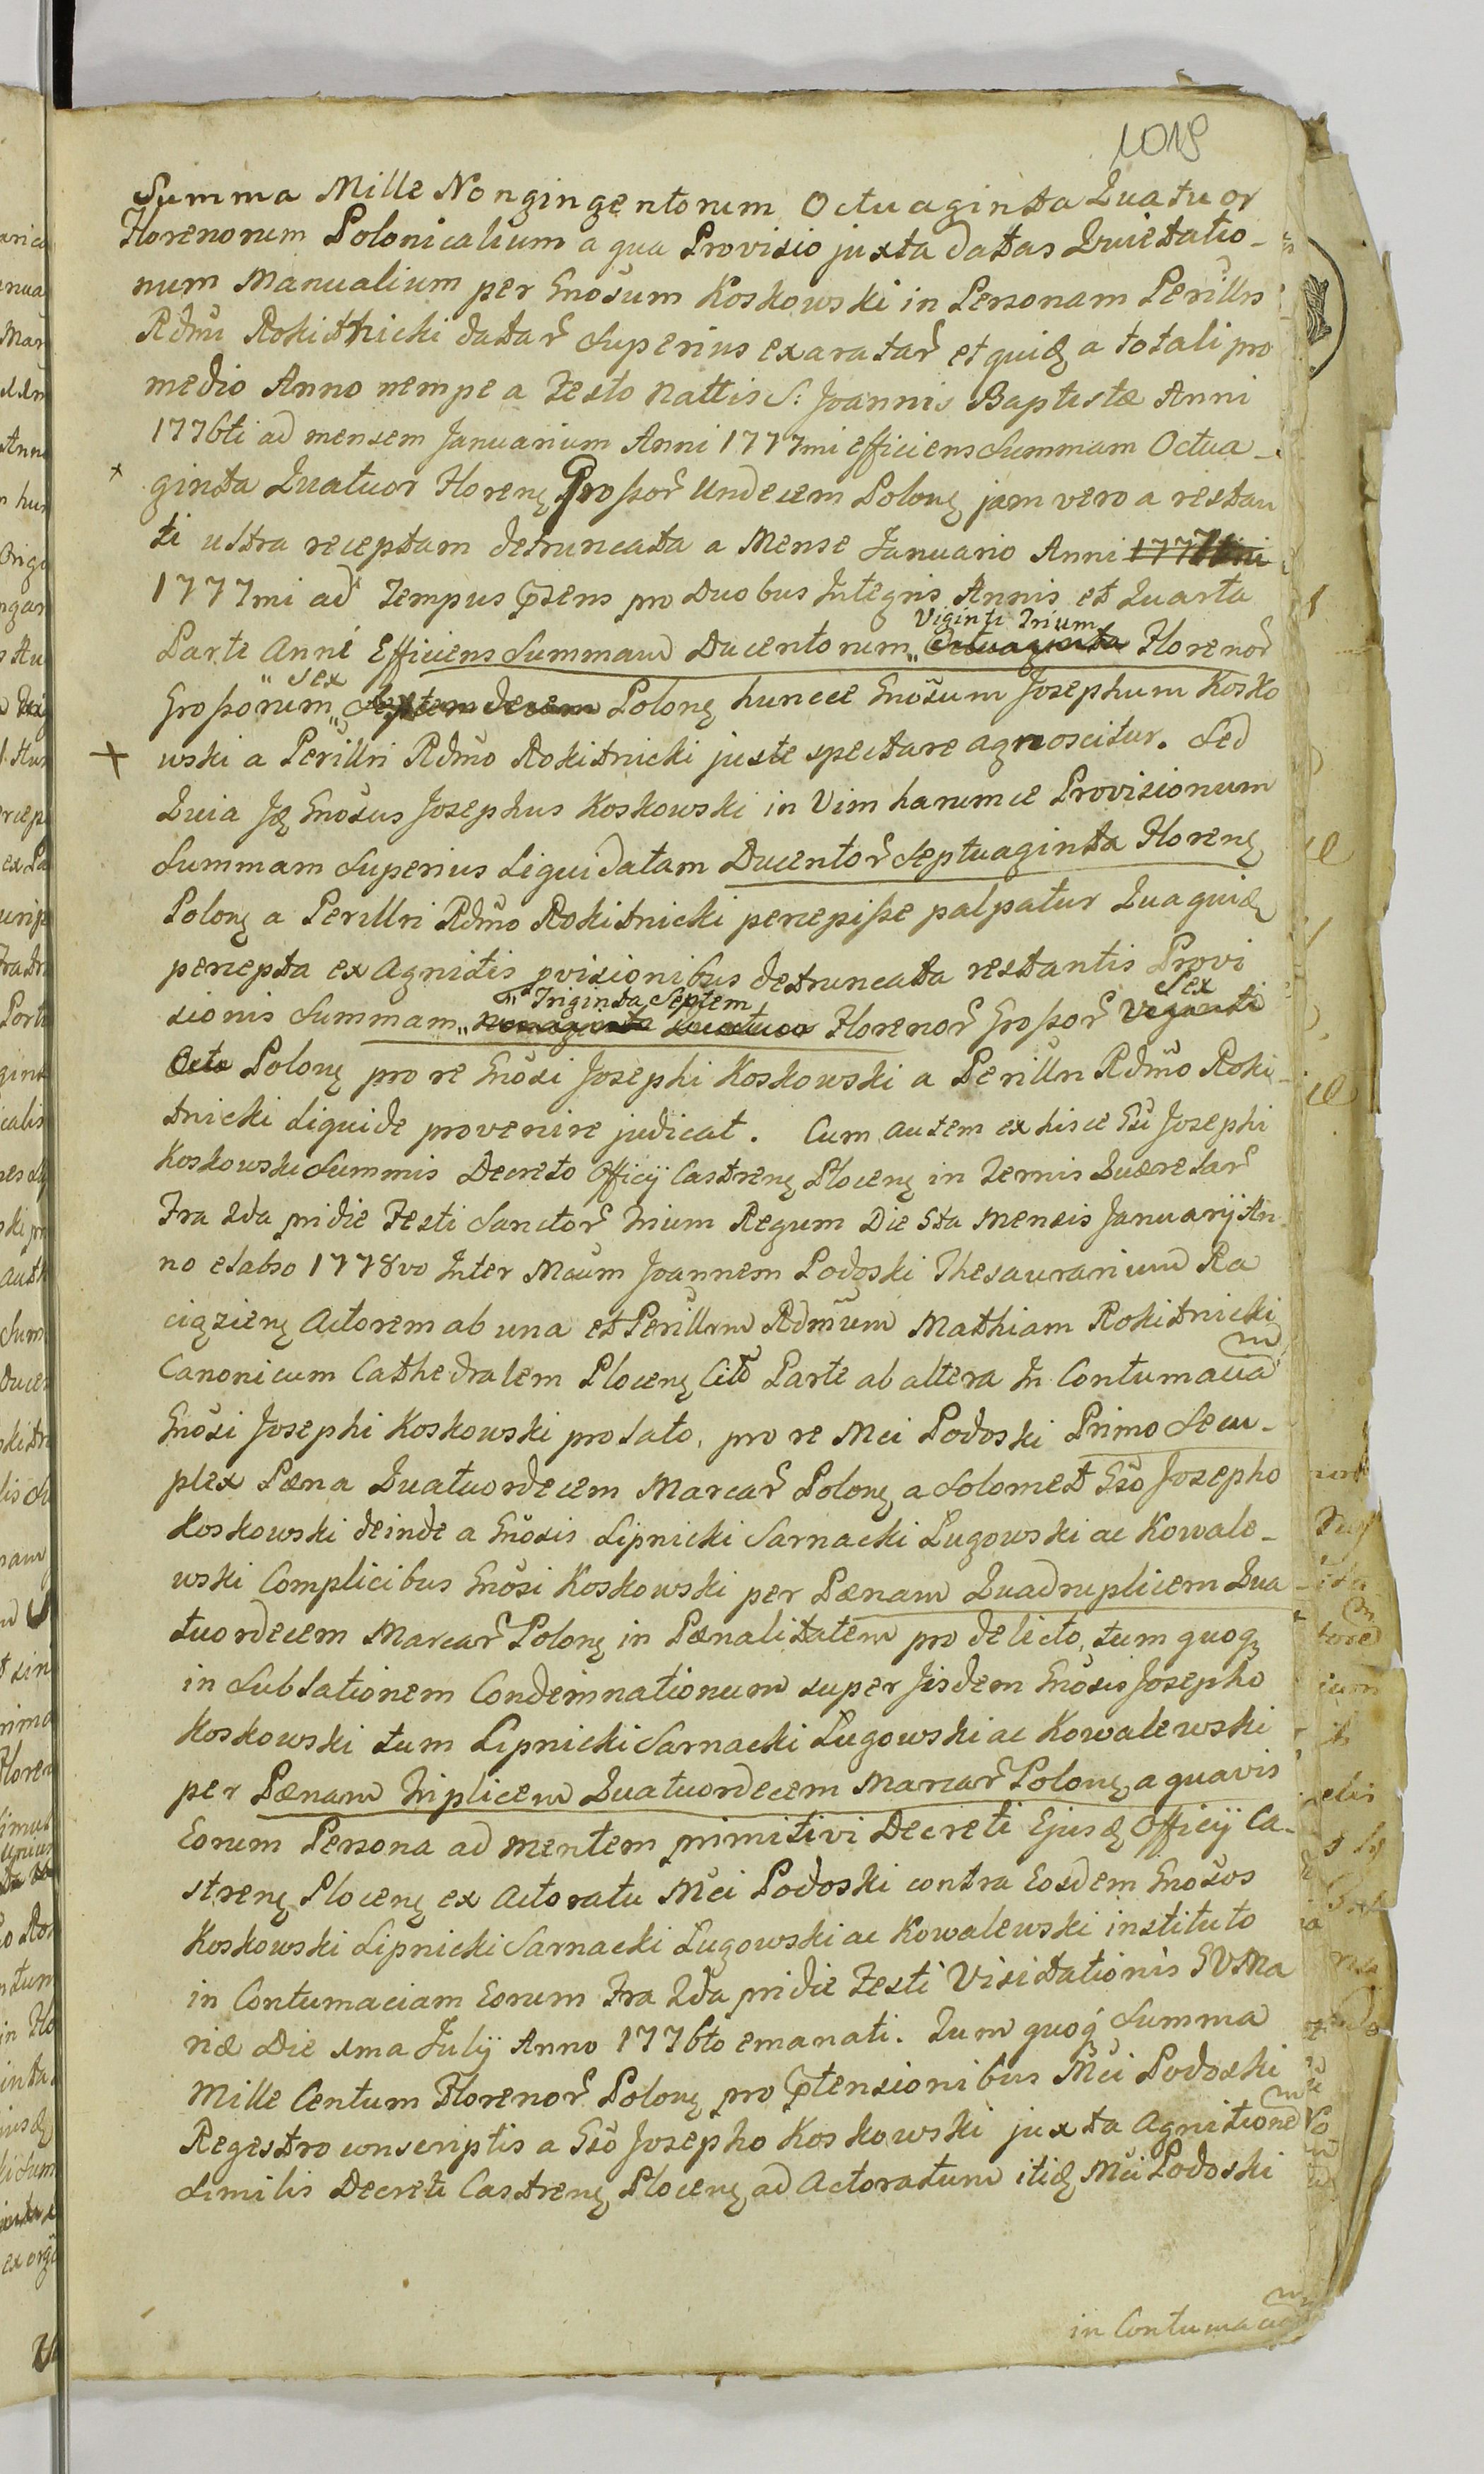 1019
Summa Mille Nongingentorum Octuaginta Quatuor
Florenorum Polonicalium a qua Provisio juxta datas Quietatio-
num Manualium per Gnosum Koskowski in Personam Perillis
Rdmi Rokitnicki datar Superius exaratar et quidę a totali pro
medio Anno nempe a Festo Nattis S: Joannis Baptistæ Anni
1776ti ad mensem Januarium Anni 1777mi efficiens Summam Octua-
ginta Quatuor Florenę Großor Undecem Polonę jam vero a restan
ti ultra receptam detruncata a Mense Januario Anni
1777mi ad Tempus pzens pro Duobus Integris Annis et Quarta
Parte Anni Efficiens Summam Ducentorum „ Viginti Trium Octuaginta Florenor
Großorum „ Sex Septemdecem Polonę huncce Gnosum Josephum Kosko
wski a Perillri Rdmo Rokitnicki juste spectare agnoscitur. Sed
QuiaJę Gnosus Josephus Koskowski in Vim harumce Provisionum
Summam Superius Liquidatam Ducentor Septuaginta Florenę
Polonę a Perillri Rdmo Rokitnicki percepiße palpatur Qua quidę
percepta ex Agnitis pvisionibus detruncata restantis Provi
sionis Summam „ Triginta Septem Nonaginta Quatuor Florenor Großor Sex Viginti
Octo Polonę pro re Gnosi Josephi Koskowski a Perillri Rdmo Roki-
tnicki Liquide provenire judicat. Cum autem ex hisce Gsi Josephi
Koskowski Summis Decreto Officij Castrenę Plocenę in Termis Querelar
Fra 2da pridie Festi Sanctor Trium Regum Die 5ta Mensis Januarij An-
no elabso 1778vo Inter Mcum Joannem Podoski Thesaurarium Ra
ciązienę Actorem ab una et Perillrm Rdmum Mathiam Rokitnicki
Canonicum Cathedralem Plocenę Citto Parte ab altera In Contumaciam
Gnosi Josephi Koskowski prolato, pro re Mci Podoski Primo Semi-
plex Pæna Quatuordecem Marcar Polonę a Solomet Gso Josepho
Koskowski deinde a Gnosis Lipnicki Sarnacki Lugowski ac Kowale-
wski Complicibus Gnosi Koskowski per Pænam Quadruplicem Qua
tuordecem Marcar Polonę in Pænalitatem pro delicto, tum quoqę
in Sublationem Condemnationum super Jisdem Gnosis Josepho
Koskowski tum Lipnicki Sarnacki Lugowski ac Kowalewski
per Pænam Triplicem Quatuordecem Marcar Polonę a quavis
Eorum Persona ad mentem primitivi Decreti Ejusdę Officij Ca-
strenę Plocenę ex Actoratu Mci Podoski contra Eosdem Gnosos
Koskowski Lipnicki Sarnacki Lugowski ac Kowalewski instituto
in Contumaciam Eorum Fra 2da pridie Festi Visitationis SVMa
riæ Die 1ma Julij Anno 1776to emanati. Tum quoq Summa
Mille Centum Florenor Polonę pro ptensionibus Mci Podoski
Regestro conscriptis a Gso Josepho Koskowski juxta Agnitionem
Similis Decreti Castrenę Plocenę ad Actoratum itidę Mci Podoski
in Contumaciam